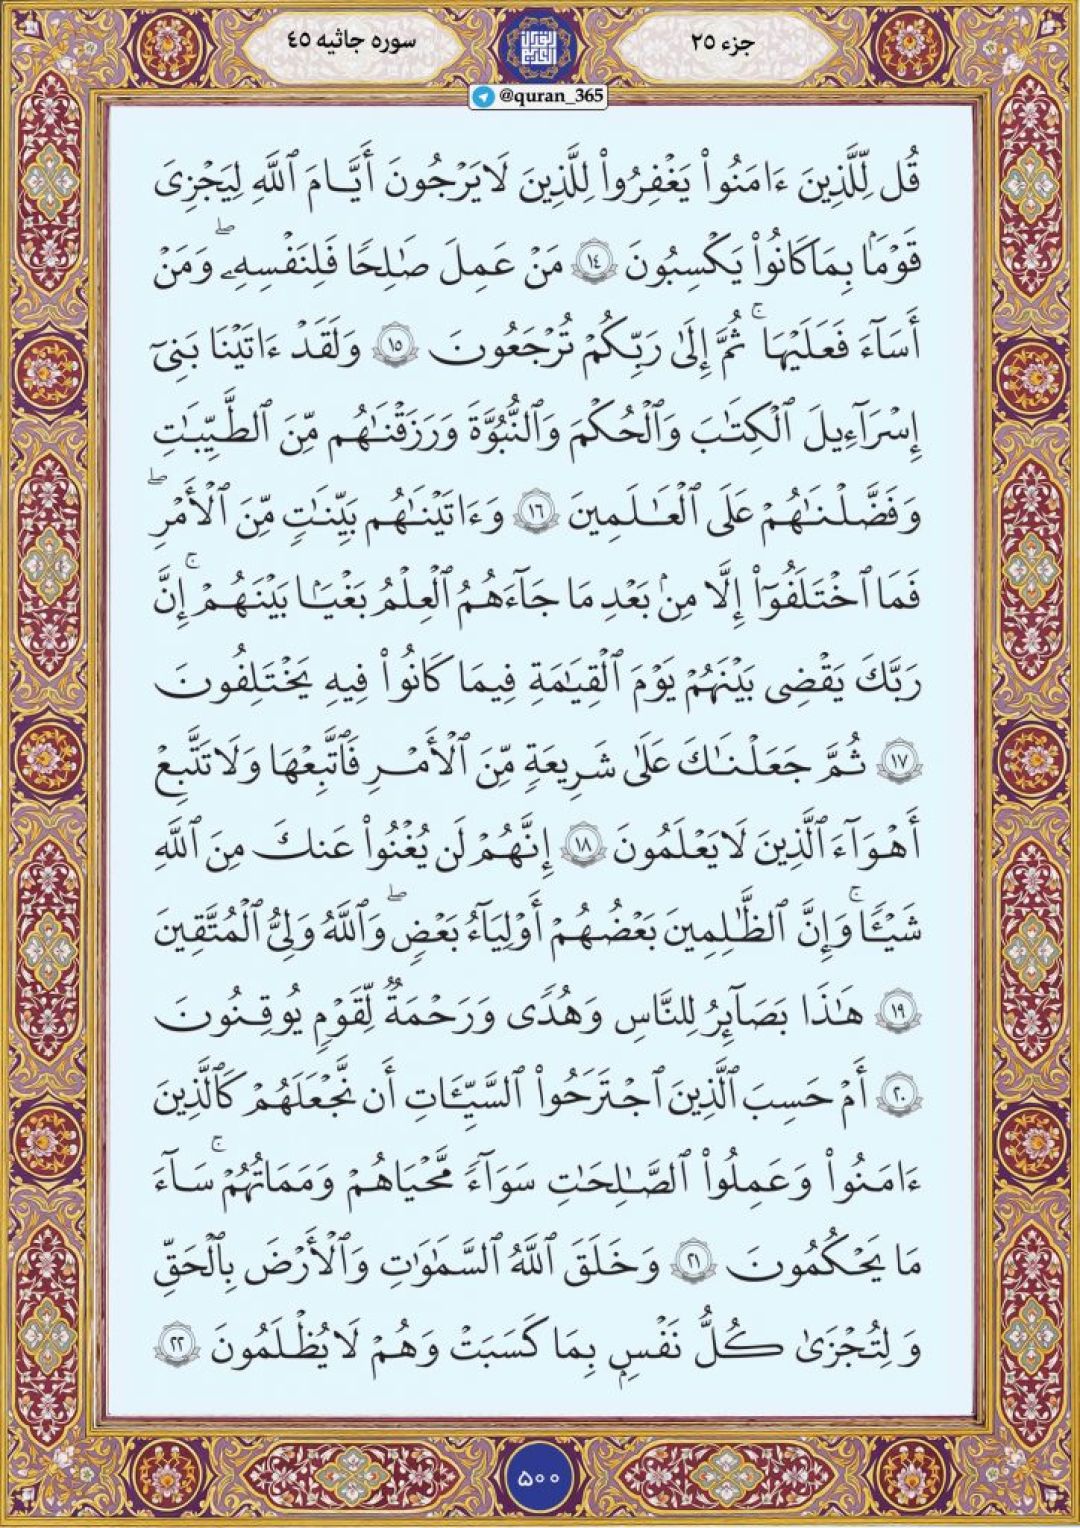 جزء ۲۵
سوره جاثیه ۴۵
@quran_365
قُل لِّلَّذِينَ ءَامَنُواْ يَغْفِرُواْ لِلَّذِينَ لَا يَرْجُونَ أَيَّامَ ٱللَّهِ لِيَجْزِىَ
قَوْمَۢا بِمَا كَانُواْ يَكْسِبُونَ ١٤ مَنْ عَمِلَ صَـٰلِحًا فَلِنَفْسِهِۦۖ وَمَنْ
أَسَآءَ فَعَلَيْهَاۚ ثُمَّ إِلَىٰ رَبِّكُمْ تُرْجَعُونَ ١٥ وَلَقَدْ ءَاتَيْنَا بَنِىٓ
إِسْرَٰٓءِيلَ ٱلْكِتَـٰبَ وَٱلْحُكْمَ وَٱلنُّبُوَّةَ وَرَزَقْنَـٰهُم مِّنَ ٱلطَّيِّبَـٰتِ
وَفَضَّلْنَـٰهُمْ عَلَى ٱلْعَـٰلَمِينَ ١٦ وَءَاتَيْنَـٰهُم بَيِّنَـٰتٍ مِّنَ ٱلْأَمْرِۖ
فَمَا ٱخْتَلَفُوٓاْ إِلَّا مِنۢ بَعْدِ مَا جَآءَهُمُ ٱلْعِلْمُ بَغْيَۢا بَيْنَهُمْۚ إِنَّ
رَبَّكَ يَقْضِى بَيْنَهُمْ يَوْمَ ٱلْقِيَـٰمَةِ فِيمَا كَانُواْ فِيهِ يَخْتَلِفُونَ
١٧ ثُمَّ جَعَلْنَـٰكَ عَلَىٰ شَرِيعَةٍ مِّنَ ٱلْأَمْرِ فَٱتَّبِعْهَا وَلَا تَتَّبِعْ
أَهْوَآءَ ٱلَّذِينَ لَا يَعْلَمُونَ ١٨ إِنَّهُمْ لَن يُغْنُواْ عَنكَ مِنَ ٱللَّهِ
شَيْـًٔاۚ وَإِنَّ ٱلظَّـٰلِمِينَ بَعْضُهُمْ أَوْلِيَآءُ بَعْضٍۖ وَٱللَّهُ وَلِىُّ ٱلْمُتَّقِينَ
١٩ هَـٰذَا بَصَـٰٓئِرُ لِلنَّاسِ وَهُدًى وَرَحْمَةٌ لِّقَوْمٍ يُوقِنُونَ
٢٠ أَمْ حَسِبَ ٱلَّذِينَ ٱجْتَرَحُواْ ٱلسَّيِّـَٔاتِ أَن نَّجْعَلَهُمْ كَٱلَّذِينَ
ءَامَنُواْ وَعَمِلُواْ ٱلصَّـٰلِحَـٰتِ سَوَآءً مَّحْيَاهُمْ وَمَمَاتُهُمْۚ سَآءَ
مَا يَحْكُمُونَ ٢١ وَخَلَقَ ٱللَّهُ ٱلسَّمَـٰوَٰتِ وَٱلْأَرْضَ بِٱلْحَقِّ
وَلِتُجْزَىٰ كُلُّ نَفْسٍۭ بِمَا كَسَبَتْ وَهُمْ لَا يُظْلَمُونَ ٢٢
۵۰۰